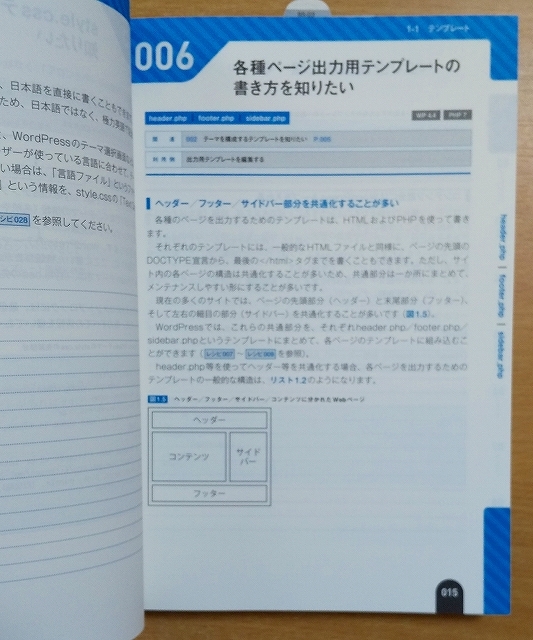 、日本語を直接に書くこともできま
ため、日本語ではなく、極力英語で
、WordPressのテーマ選択画面な
ーザーが使っている言語に合わせて、
い場合は、「言語ファイル」という
」という情報を、style.cssの「Text
レシピ028 を参照してください。
1-1 テンプレート
006
各種ページ出力用テンプレートの
書き方を知りたい
header.php footer.php sidebar.php
WP 4.4 PHP 7
関連 002 テーマを構成するテンプレートを知りたい P.005
利用例 出力用テンプレートを編集する
ヘッダー／フッター／サイドバー部分を共通化することが多い
各種のページを出力するためのテンプレートは、HTMLおよびPHPを使って書き
ます。
それぞれのテンプレートには、一般的なHTMLファイルと同様に、ページの先頭の
DOCTYPE宣言から、最後の</html>タグまでを書くこともできます。ただし、サイ
ト内の各ページの構造は共通化することが多いため、共通部分は一か所にまとめて、
メンテナンスしやすい形にすることが多いです。
現在の多くのサイトでは、ページの先頭部分（ヘッダー）と末尾部分（フッター）、
そして左右の細目の部分（サイドバー）を共通化することが多いです（図1.5）。
WordPressでは、これらの共通部分を、それぞれheader.php／footer.php／
sidebar.phpというテンプレートにまとめて、各ページのテンプレートに組み込むこ
とができます（レシピ007～レシピ009を参照）。
header.php等を使ってヘッダー等を共通化する場合、各ページを出力するための
テンプレートの一般的な構造は、リスト1.2のようになります。
図1.5 ヘッダー／フッター／サイドバー／コンテンツに分かれたWebページ
ヘッダー
コンテンツ
サイド
バー
フッター
header.php | footer.php | sidebar.php
015